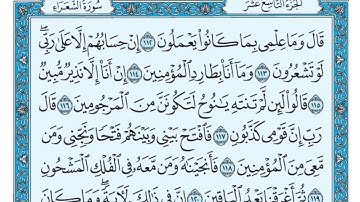 الجزء التاسع عشر سورة الشعراء
قَالَ وَمَا عِلْمِى بِمَا كَانُوا۟ يَعْمَلُونَ ١١٢ إِنْ حِسَابُهُمْ إِلَّا عَلَىٰ رَبِّى ۖ
لَوْ تَشْعُرُونَ ١١٣ وَمَآ أَنَا۠ بِطَارِدِ ٱلْمُؤْمِنِينَ ١١٤ إِنْ أَنَا۠ إِلَّا نَذِيرٌ مُّبِينٌ
١١٥ قَالُوا۟ لَئِن لَّمْ تَنتَهِ يَٰنُوحُ لَتَكُونَنَّ مِنَ ٱلْمَرْجُومِينَ ١١٦ قَالَ
رَبِّ إِنَّ قَوْمِى كَذَّبُونِ ١١٧ فَٱفْتَحْ بَيْنِى وَبَيْنَهُمْ فَتْحًا وَنَجِّنِى وَمَن
مَّعِىَ مِنَ ٱلْمُؤْمِنِينَ ١١٨ فَأَنجَيْنَٰهُ وَمَن مَّعَهُۥ فِى ٱلْفُلْكِ ٱلْمَشْحُونِ
١١٩ ثُمَّ أَغْرَقْنَا بَعْدُ ٱلْبَاقِينَ ١٢٠ إِنَّ فِى ذَٰلِكَ لَءَايَةً ۖ وَمَا كَانَ